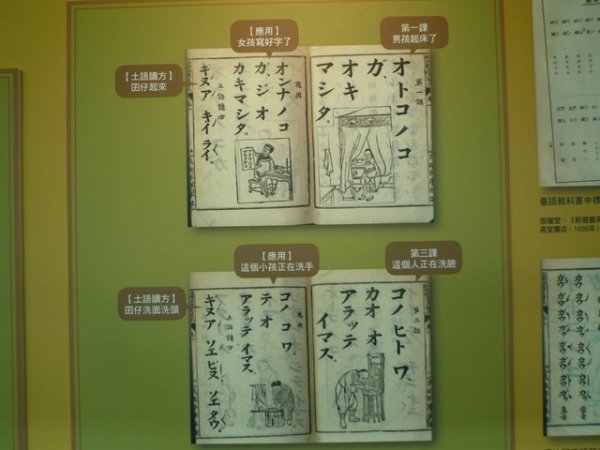 第一課
男孩起床了
第一課
オトコノコ
ガ、
オキ
マシタ。
【應用】
女孩寫好字了
應用
オンナノコ
ガ、ジオ
カキマシタ。
【土語讀方】
囝仔起來
土語讀方
キヌア キイ ライ。
第三課
這個人正在洗臉
第三課
コノ ヒトワ、
カオ オ
アラッテ
イマス。
【應用】
這個小孩正在洗手
應用
コノ コワ、
テ オ
アラッテ イマス。
【土語讀方】
囝仔洗面洗頭
土語讀方
臺語教科書中標
張耀堂，《新選臺
高堂書店，1935年）